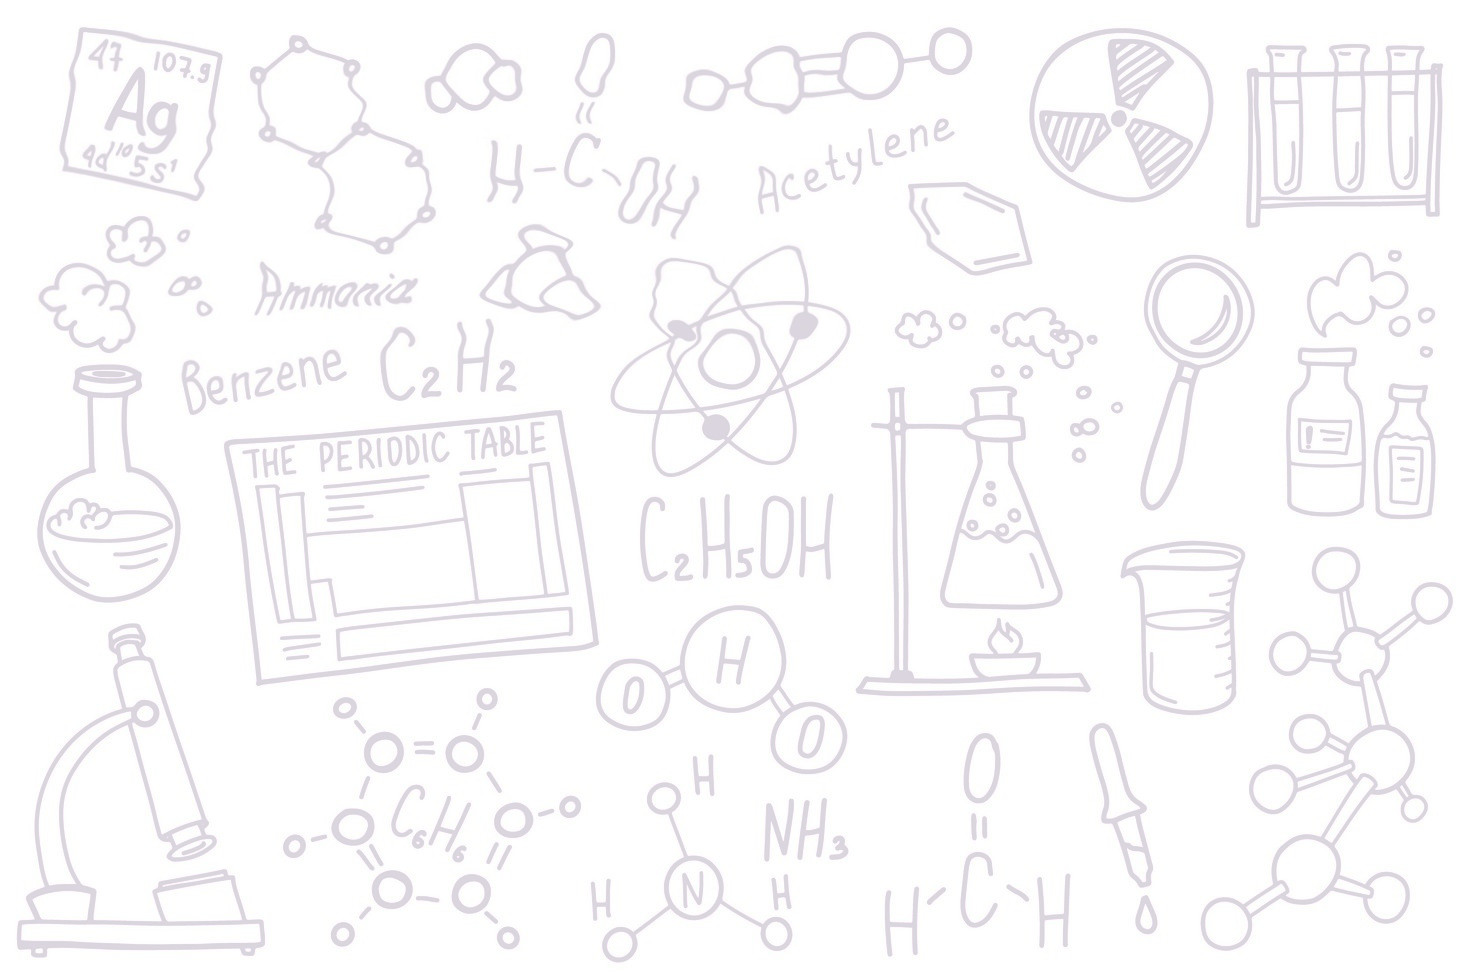 47 107.9
Ag
4d¹⁰ 5s¹
O
H C OH
Acetylene
Ammonia
Benzene
C₂H₂
THE PERIODIC TABLE
C₂H₅OH
!
O H O
C₆H₆
H
N
H H
NH₃
O
C
H H